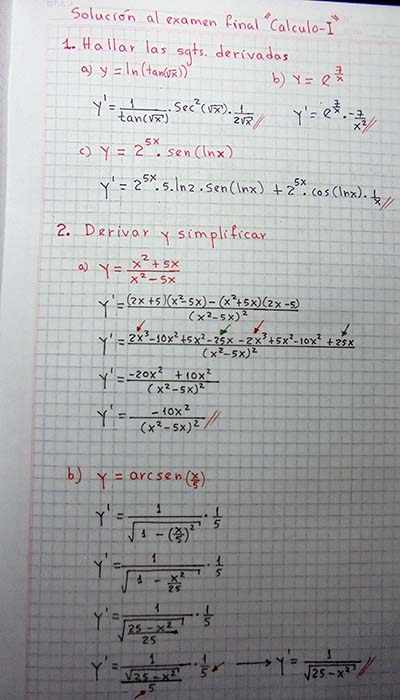 Solución al examen final "Calculo-I"
1. Hallar las sgts. derivadas
a) y = ln(tan(√x)) b) y = e^(7/x)
y' = 1/tan(√x) · sec²(√x) · 1/(2√x) // y' = e^(7/x) · -7/x² //
c) y = 2^(5x) · sen(lnx)
y' = 2^(5x) · 5 · ln2 · sen(lnx) + 2^(5x) · cos(lnx) · 1/x //
2. Derivar y simplificar
a) y = (x² + 5x)/(x² - 5x)
y' = ((2x+5)(x²-5x) - (x²+5x)(2x-5))/(x²-5x)²
y' = (2x³ - 10x² + 5x² - 25x - 2x³ + 5x² - 10x² + 25x)/(x²-5x)²
y' = (-20x² + 10x²)/(x²-5x)²
y' = -10x²/(x²-5x)² //
b) y = arcsen(x/5)
y' = 1/√(1 - (x/5)²) · 1/5
y' = 1/√(1 - x²/25) · 1/5
y' = 1/√((25 - x²)/25) · 1/5
y' = 1/(√(25-x²)/5) · 1/5 → y' = 1/√(25-x²) //